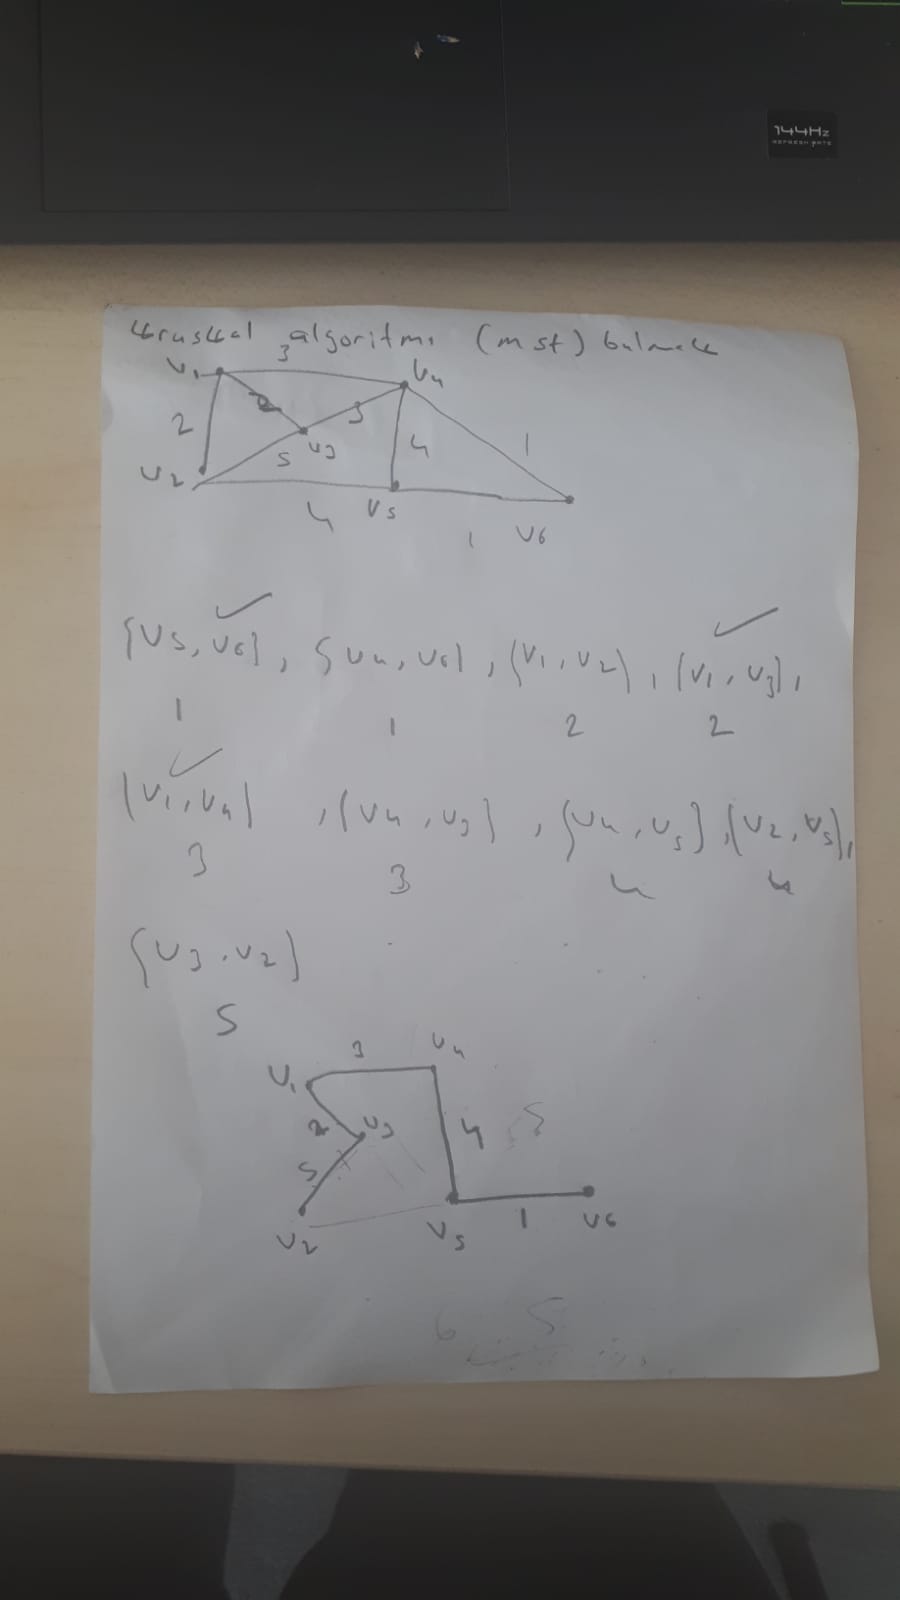 144Hz
REFRESH RATE
kruskal algoritmı (mst) bulmak
3
V1
V4
2
2
3
1
V3
4
5
V2
V5
4
1
V6
{V5, V6}, {V4, V6}, {V1, V2}, {V1, V3},
1 1 2 2
{V1, V4}, {V4, V3}, {V4, V5}, {V2, V5},
3 3 4 4
{V3, V2}
5
3
V4
V1
2
V3
4
5
5
V2
V5
1
V6
6 5